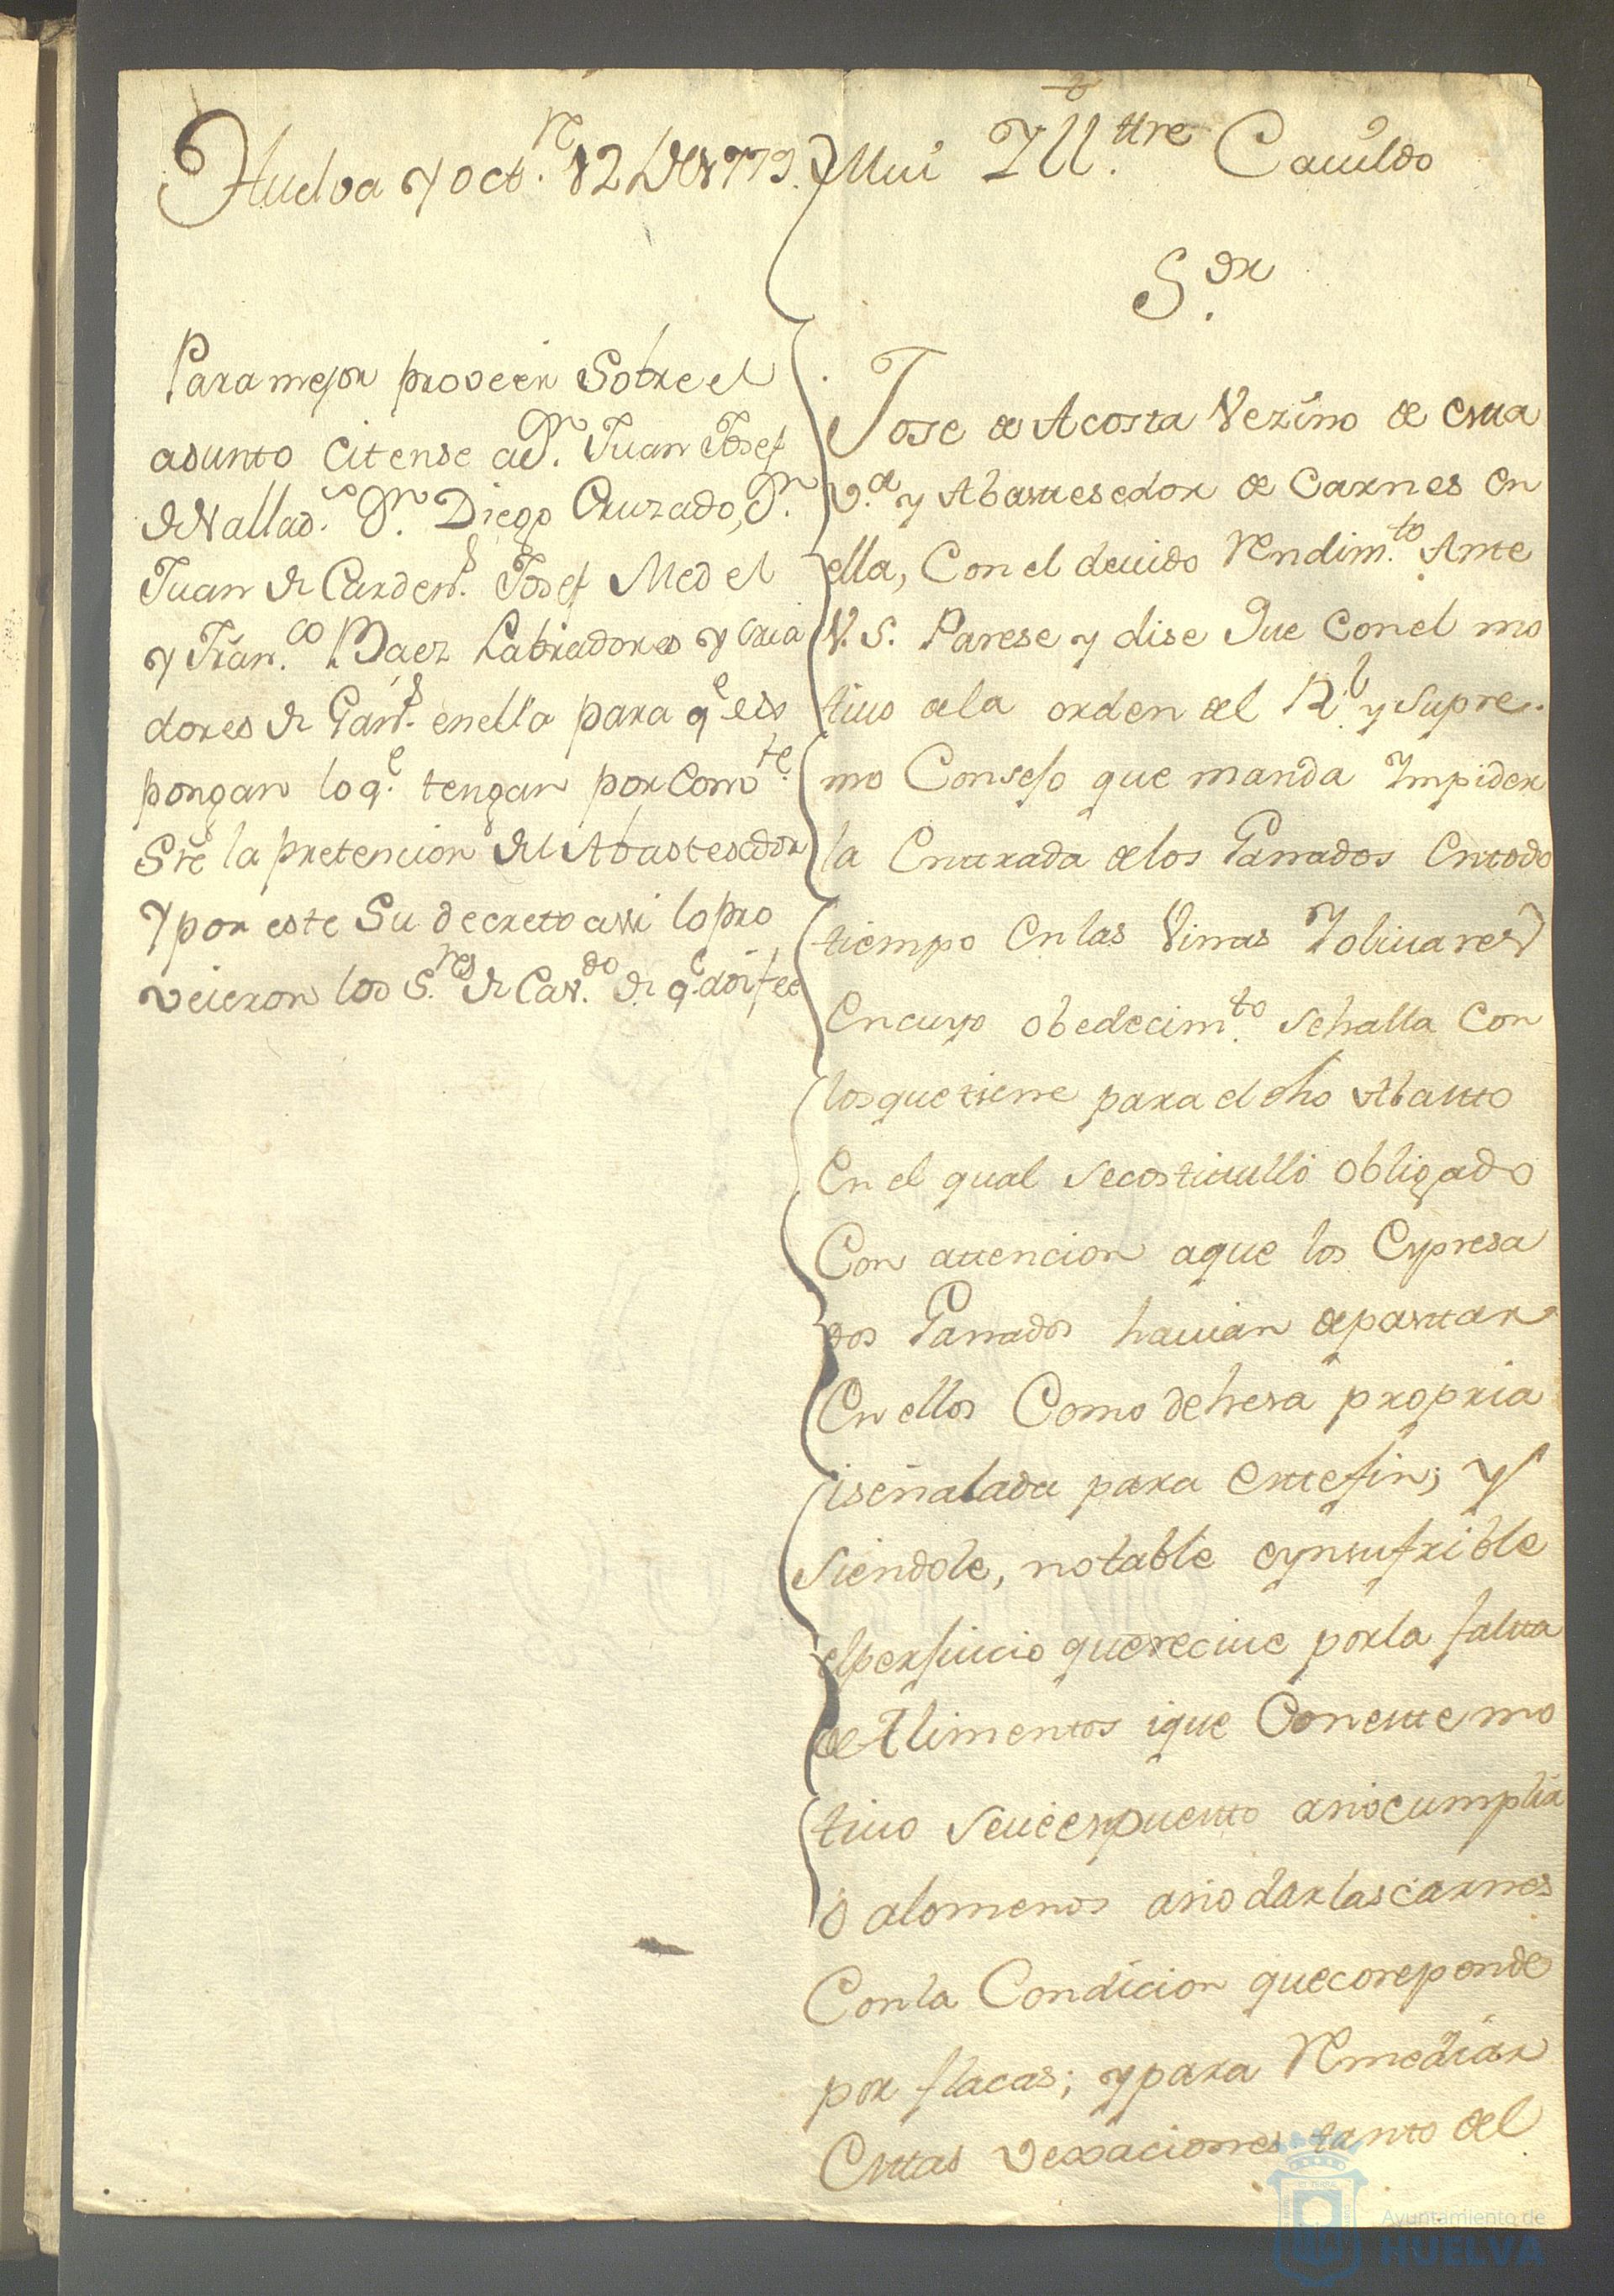 Huelva y oct.re 12 de 1779.
Para mejor proveer Sobre el
asunto citense a Dn. Juan Josef
de Vallad.s Dn. Diego Cruzado, Dn.
Juan de Carden.s Josef Medel
y Fran.co Baez Labradores y cria
dores de Gan.s en ella para q.e ex
pongan lo q.e tengan por com.te
Sre la pretencion del Abastesedor
Y por este Su decretto assi lo pro
veieron los S.res de Cav.do de q.e doi fee
Mui Ill.ttre Cauildo
S.or
Jose de Acosta Vezino de estta
V.a y Abasttesedor de Carnes en
ella, Con el deuido Rendim.to Ante
V. S. Parese y dise Que Con el mo
tiuo de la orden del R.l y Supre-
mo Consejo que manda Impider
la Enttrada de los Ganados En todo
tiempo En las Vinas Y oliuares
En cuyo obedecim.to se halla Con
los que tiene para el dho Abastto
En el qual se costituulló obligado
Con attencion a que los Expresa
dos Ganados hauian de pasttar
En ellos Como dehesa propria
i señalada para estte fin; y
Siendole, notable e ynsufrible
el perjuicio que reciue por la faltta
de Alimentos i que Con estte mo
tiuo se ue expuestto a no cumplir
ó a lo menos a no dar las carnes
Con la Condicion que coreponde
por flacas; y para Remediar
Esttas vexaciones tanto del
Ayuntamiento de
HUELVA